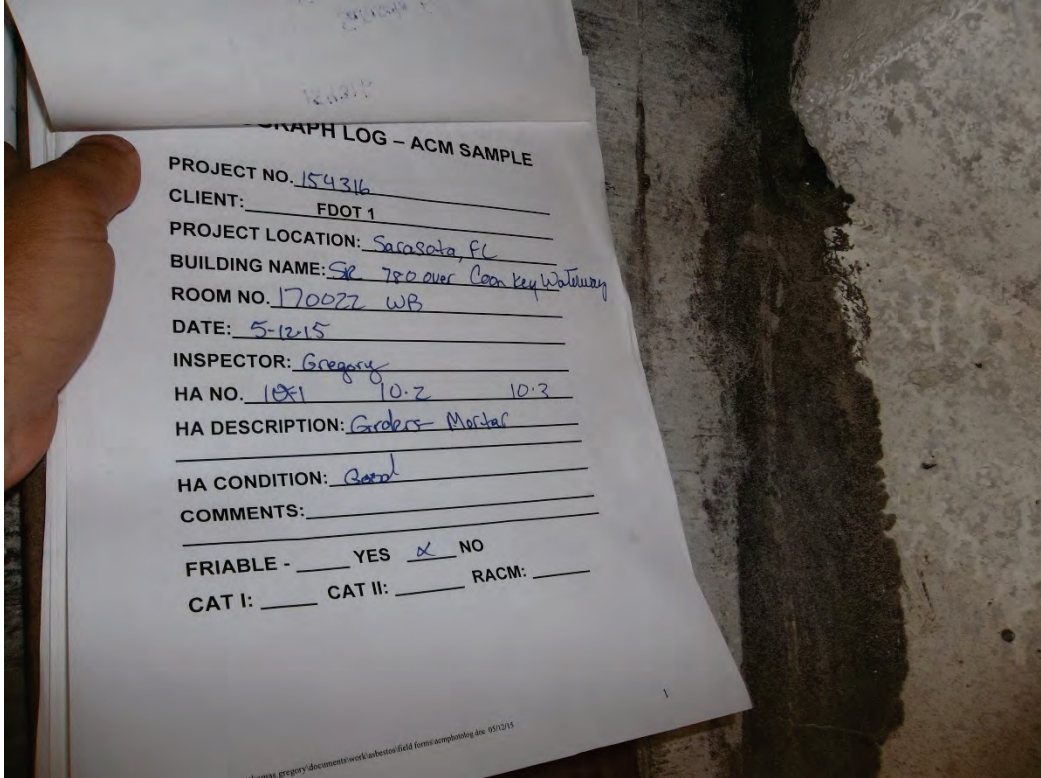 GRAPH LOG – ACM SAMPLE
PROJECT NO. 154316
CLIENT: FDOT 1
PROJECT LOCATION: Sarasota, FL
BUILDING NAME: SR 780 over Coon Key Waterway
ROOM NO. 170022 WB
DATE: 5-12-15
INSPECTOR: Gregory
HA NO. 10-1 10-2 10-3
HA DESCRIPTION: Girders Mortar
HA CONDITION: Good
COMMENTS:
FRIABLE - YES X NO
CAT I: CAT II: RACM:
1
gregory\documents\work\asbestos\field forms\acmphotolog.doc 05/12/15